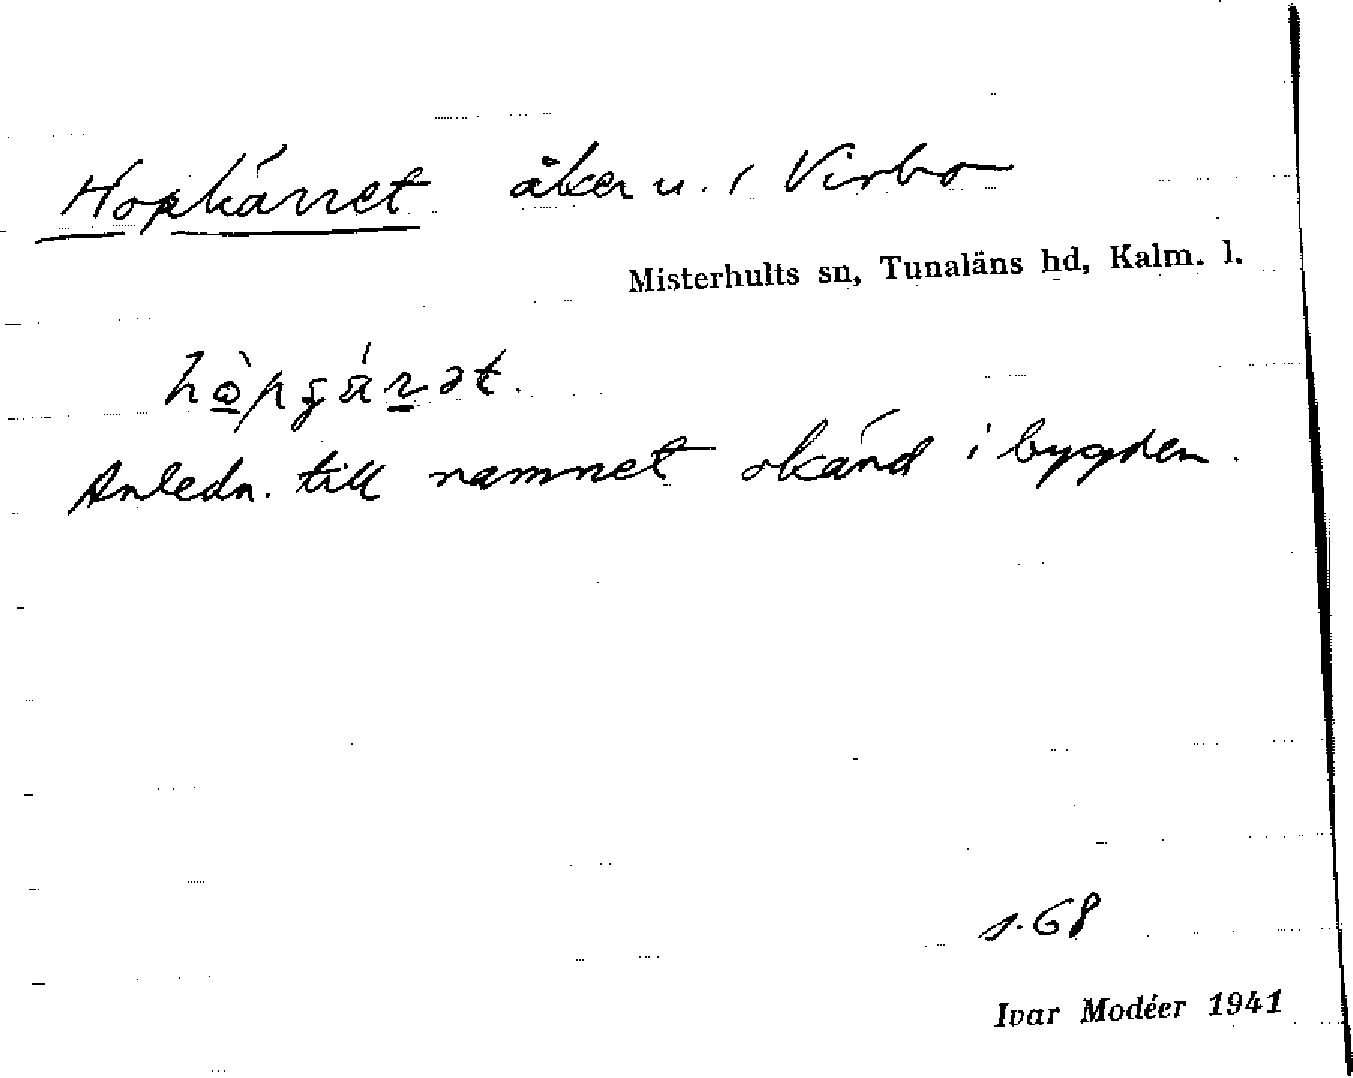 Hopkärret åker u. i Virbo
Misterhults sn, Tunaläns hd, Kalm. l.
Anledn. till namnet okänd i bygden.
s. 68
Ivar Modéer 1941